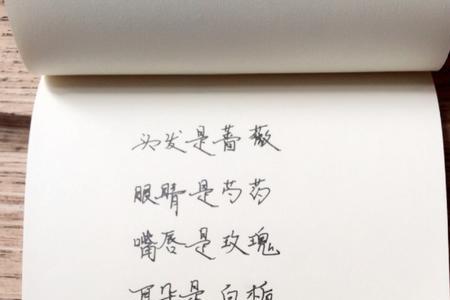 头发是蔷薇
眼睛是芍药
嘴唇是玫瑰
耳朵是白栀